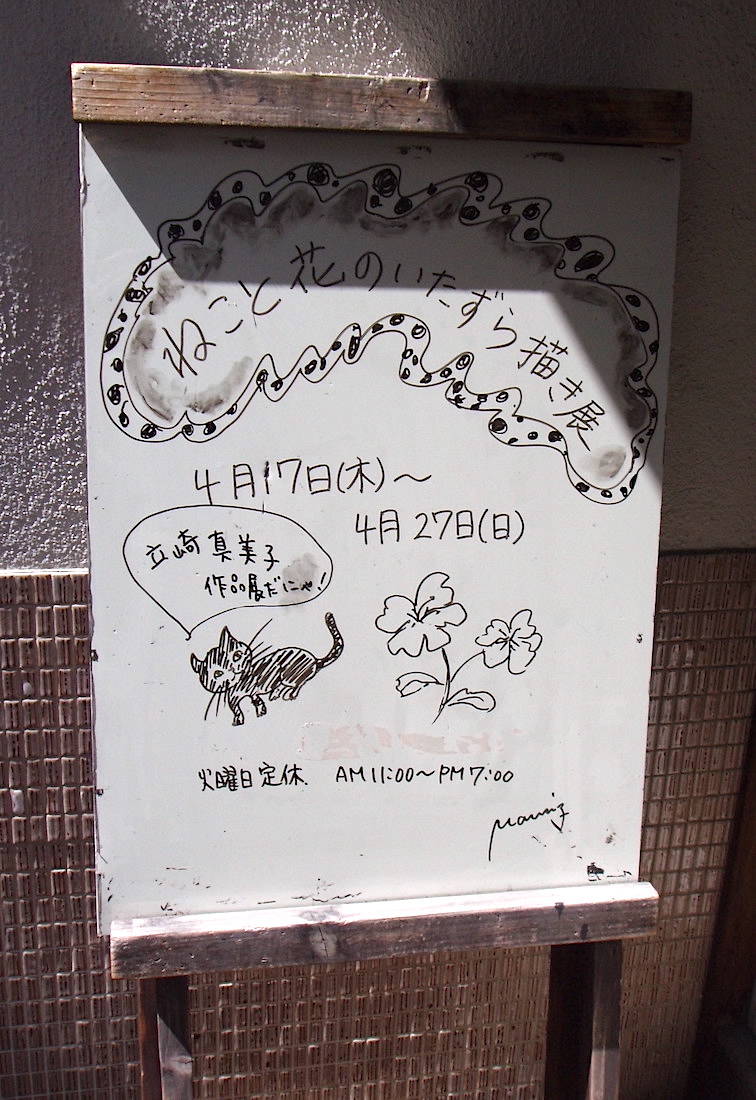 ねこと花のいたずら描き展
4月17日(木)〜
4月27日(日)
立崎真美子
作品展だにゃ!
火曜日定休 AM11:00〜PM7:00